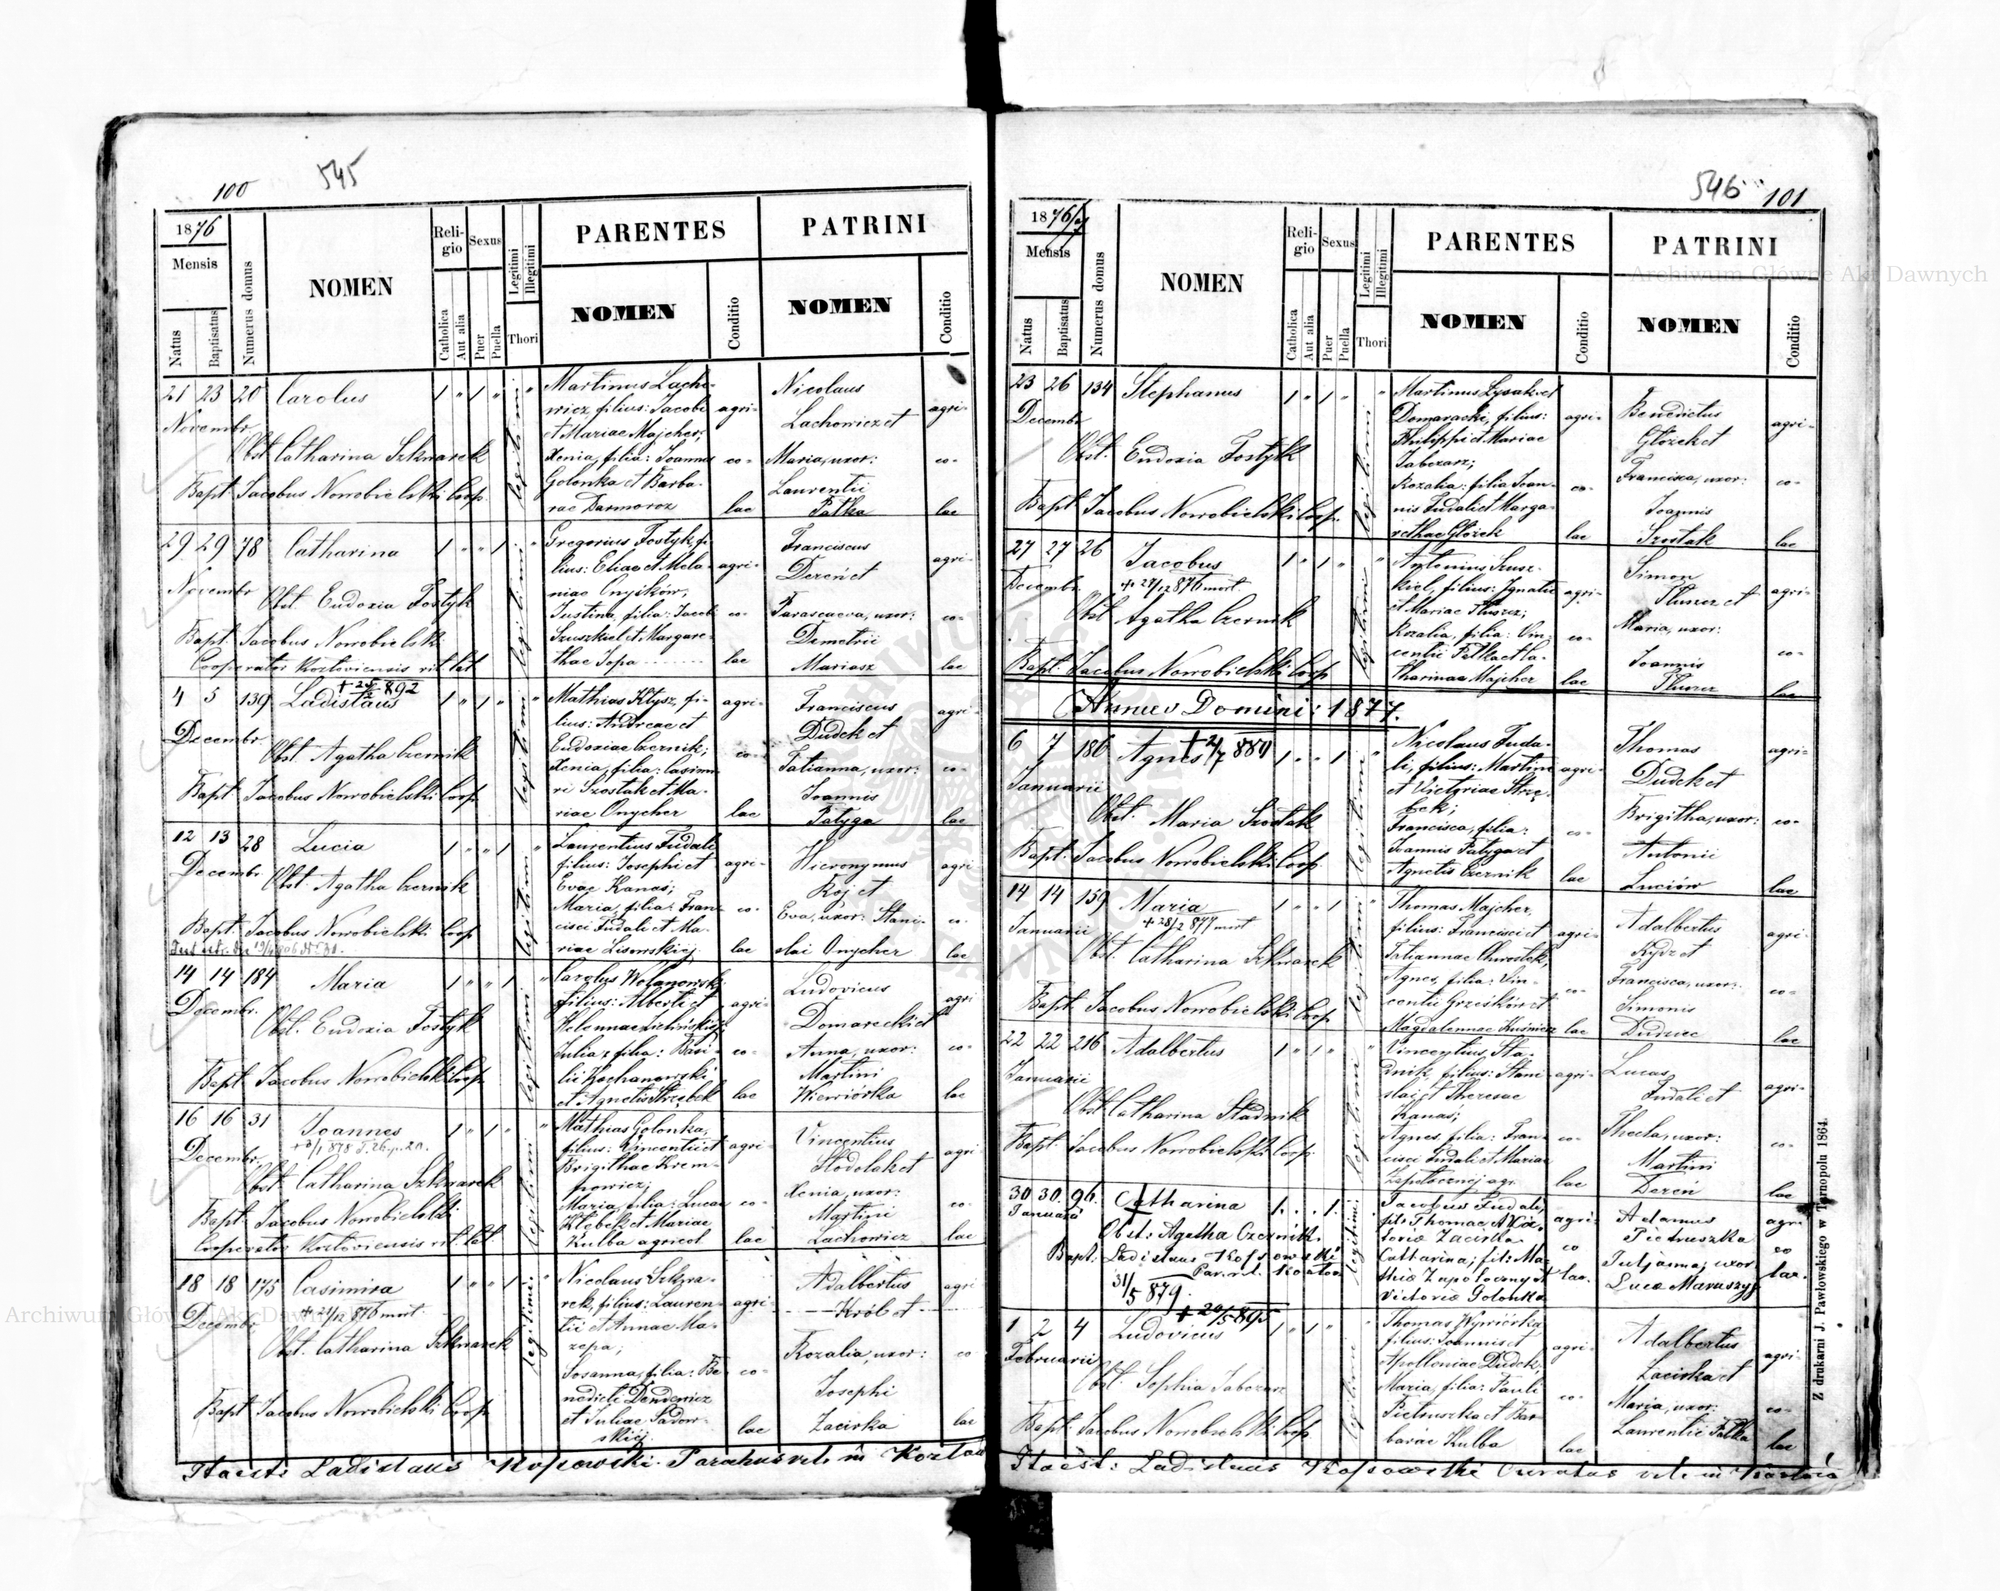 100
545
1876
Mensis
Natus
Baptisatus
Numerus domus
NOMEN
Reli-
gio
Catholica
Aut alia
Sexus
Puer
Puella
Legitimi
Illegitimi
Thori
PARENTES
NOMEN
Conditio
PATRINI
NOMEN
Conditio
21 23 20 Carolus 1 " 1 "
Novembr
Obst Catharina Szkwarek
Bapt. Jacobus Nowobielski Coop.
legitimi
Martinus Lacho-
wicz, filius: Jacobi
et Mariae Majcher;
Xenia, filia: Joannis
Golonka et Barba-
rae Darmoroz
agri-
co-
lae
Nicolaus
Lachowicz et
Maria, uxor:
Laurentii
Pałka
agri-
co-
lae
29 29 78 Catharina 1 " " 1
Novembr
Obst. Eudoxia Fostyk
Bapt. Jacobus Nowobielski
Cooperator Kozloviensis rit. lat.
legitimi
Gregorius Fostyk, fi-
lius: Eliae et Mela-
niae
Justina, filia: Jacobi
Szuszkiel et Margare-
thae Sopa
agri-
co-
lae
Franciscus
Dereń et
Parascaeva, uxor:
Demetrii
Mariasz
agri-
co-
lae
4 5 139 Ladislaus 1 " 1 "
Decembr.
Obst. Agatha Czernik
Bapt. Jacobus Nowobielski Coop.
legitimi
Mathias Kłysz, fi-
lius: Andreae et
Eudoxiae Czernik;
Xenia, filia: Casimi-
ri Szostak et Ma-
riae Onycher
agri-
co-
lae
Franciscus
Dudek et
Tatianna, uxor:
Joannis
Patyga
agri-
co-
lae
12 13 28 Lucia 1 " " 1
Decembr
Obst. Agatha Czernik
Bapt. Jacobus Nowobielski Coop
legitimi
Laurentius Fudali
filius: Josephi et
Evae Kanas;
Maria, filia: Fran-
cisci Fudali et Ma-
riae Lisowskiej
agri-
co-
lae
Hieronymus
Rój et
Eva, uxor: Stani-
slai Onycher
agri
co-
lae
14 14 184 Maria 1 " " 1
Decembr.
Obst. Eudoxia Fostyk
Bapt. Jacobus Nowobielski Coop.
legitimi
Carolus Wolanowski
filius: Alberti et
Julia, filia: Basi-
lii Kochanowski
et Agnetis Strzębek
agri-
co-
lae
Ludovicus
Domarecki et
Anna, uxor:
Martini
Wiewiórka
agri
co-
lae
16 16 31 Joannes 1 " 1 "
Decembr.
Obst. Catharina Szkwarek
Bapt. Jacobus Nowobielski
Cooperator Kozloviensis rit. lat.
legitimi
Mathias Golonka,
filius: Vincentii et
Brigithae Krem-
powicz;
Maria, filia: Lucae
Klębek et Mariae
Kulba agricol
agri-
co-
lae
Vincentius
Stodolak et
Xenia, uxor:
Martini
Lachowicz
agri-
co-
lae
18 18 175 Casimira 1 " " 1
+ 24/12 876 mort
Decembr,
Obst. Catharina Szkwarek
Bapt. Jacobus Nowobielski Coop.
legitimi
Nicolaus Szkwa-
rek, filius: Lauren-
tii et Annae Ma-
zepa;
Sosanna, filia: Be-
nedicti Denderiez
et Juliae Sadow-
skiej.
agri-
co-
lae
Adalbertus
Król et
Rozalia, uxor:
Josephi
Zacirka
agri
co
lae
Ladislaus Kossowski Parochus r. l. in Kozłów
546
101
1876/77
Mensis
Natus
Baptisatus
Numerus domus
NOMEN
Reli-
gio
Catholica
Aut alia
Sexus
Puer
Puella
Legitimi
Illegitimi
Thori
PARENTES
NOMEN
Conditio
PATRINI
NOMEN
Conditio
23 26 134 Stephanus 1 " 1 "
Decembr
Obst. Eudoxia Fostyk
Bapt. Jacobus Nowobielski Coop.
legitimi
Martinus Lysak et
Domaracki, filius:
Philippi et Mariae
Tabozarz;
Rozalia: filia Joan-
nis Fudali et Marga-
rethae Głozek
agri-
co-
lae
Benedictus
Głozek et
Francisca, uxor:
Joannis
Szostak
agri-
co-
lae
27 27 26 Jacobus 1 " 1 "
Decembr.
Obst Agatha Czernik
Bapt. Jacobus Nowobielski Coop
legitimi
Antonius Szusz-
kiel, filius: Ignatii
et Mariae Tłuszcz;
Rozalia, filia: Vin-
centii Pałka et Ca-
tharinae Majcher
agri-
co-
lae
Simon
Tłuszcz et
Maria, uxor:
Joannis
Tłuszcz
agri-
co-
lae
Annus Domini: 1877.
6 7 186 Agnes 1 " " 1
Januarii
Obst. Maria Szostak
Bapt. Jacobus Nowobielski Coop
legitimi
Nicolaus Fuda-
li, filius: Martini
et Victoriae Strzę-
bek;
Francisca, filia:
Joannis Patyga et
Agnetis Czernik
agri-
co-
lae
Thomas
Dudek et
Brigitha, uxor:
Antonii
Luciów
agri-
co-
lae
14 14 159 Maria 1 " " 1
+ 28/2 877 mort
Januarii
Obst. Catharina Szkwarek
Bapt. Jacobus Nowobielski Coop
legitimi
Thomas Majcher,
filius: Francisci et
Tatiannae Chwostek;
Agnes, filia: Vin-
centii Grześków et
Magdalennae Kuśnierz
agri-
co-
lae
Adalbertus
Rydz et
Francisca, uxor:
Simonis
Dudziec
agri-
co-
lae
22 22 216 Adalbertus 1 " 1 "
Januarii
Obst. Catharina Stadnik
Bapt. Jacobus Nowobielski Coop.
legitimi
Vincentius Sta-
dnik, filius: Stani
slai et Theresae
Kanas;
Agnes, filia: Fran-
cisci Fudali et Mariae
agri-
co-
lae
Lucas
Fudali et
Thecla, uxor:
Martini
Dereń
agri-
co-
lae
30 30. 96. Catharina 1. . . 1.
Januarii
Obst: Agatha Czernik
Bapt: Ladislaus Kossowski
Par. r. l. Kozłów
31/5 879.
legitimi
Jacobus Fudali,
Catharina; fil: Ma-
thiae Zapotoczny et
Victoria Golonka
agri-
co
lae.
Adamus
Pietruszka
Julianna, uxor
Lucae Maruszyj
agri
co
lae.
1 2 4 Ludovicus 1 " 1 "
+ 20/5 895
Februarii
Obst. Sophia Tabozarz
Bapt. Jacobus Nowobielski Coop.
legitimi
Thomas Wiwiórka
filius: Joannis et
Apolloniae Dudek,
Maria, filia: Pauli
Pietruszka et Bar-
barae Kulba
agri-
co-
lae
Adalbertus
Zacirka et
Maria, uxor:
Laurentii Pałka
agri-
co-
lae
Ladislaus Kossowski Curatus r. l. in Kozłów
Z drukarni J. Pawłowskiego w Tarnopolu 1864.
Archiwum Główne Akt Dawnych
Archiwum Główne Akt Dawnych